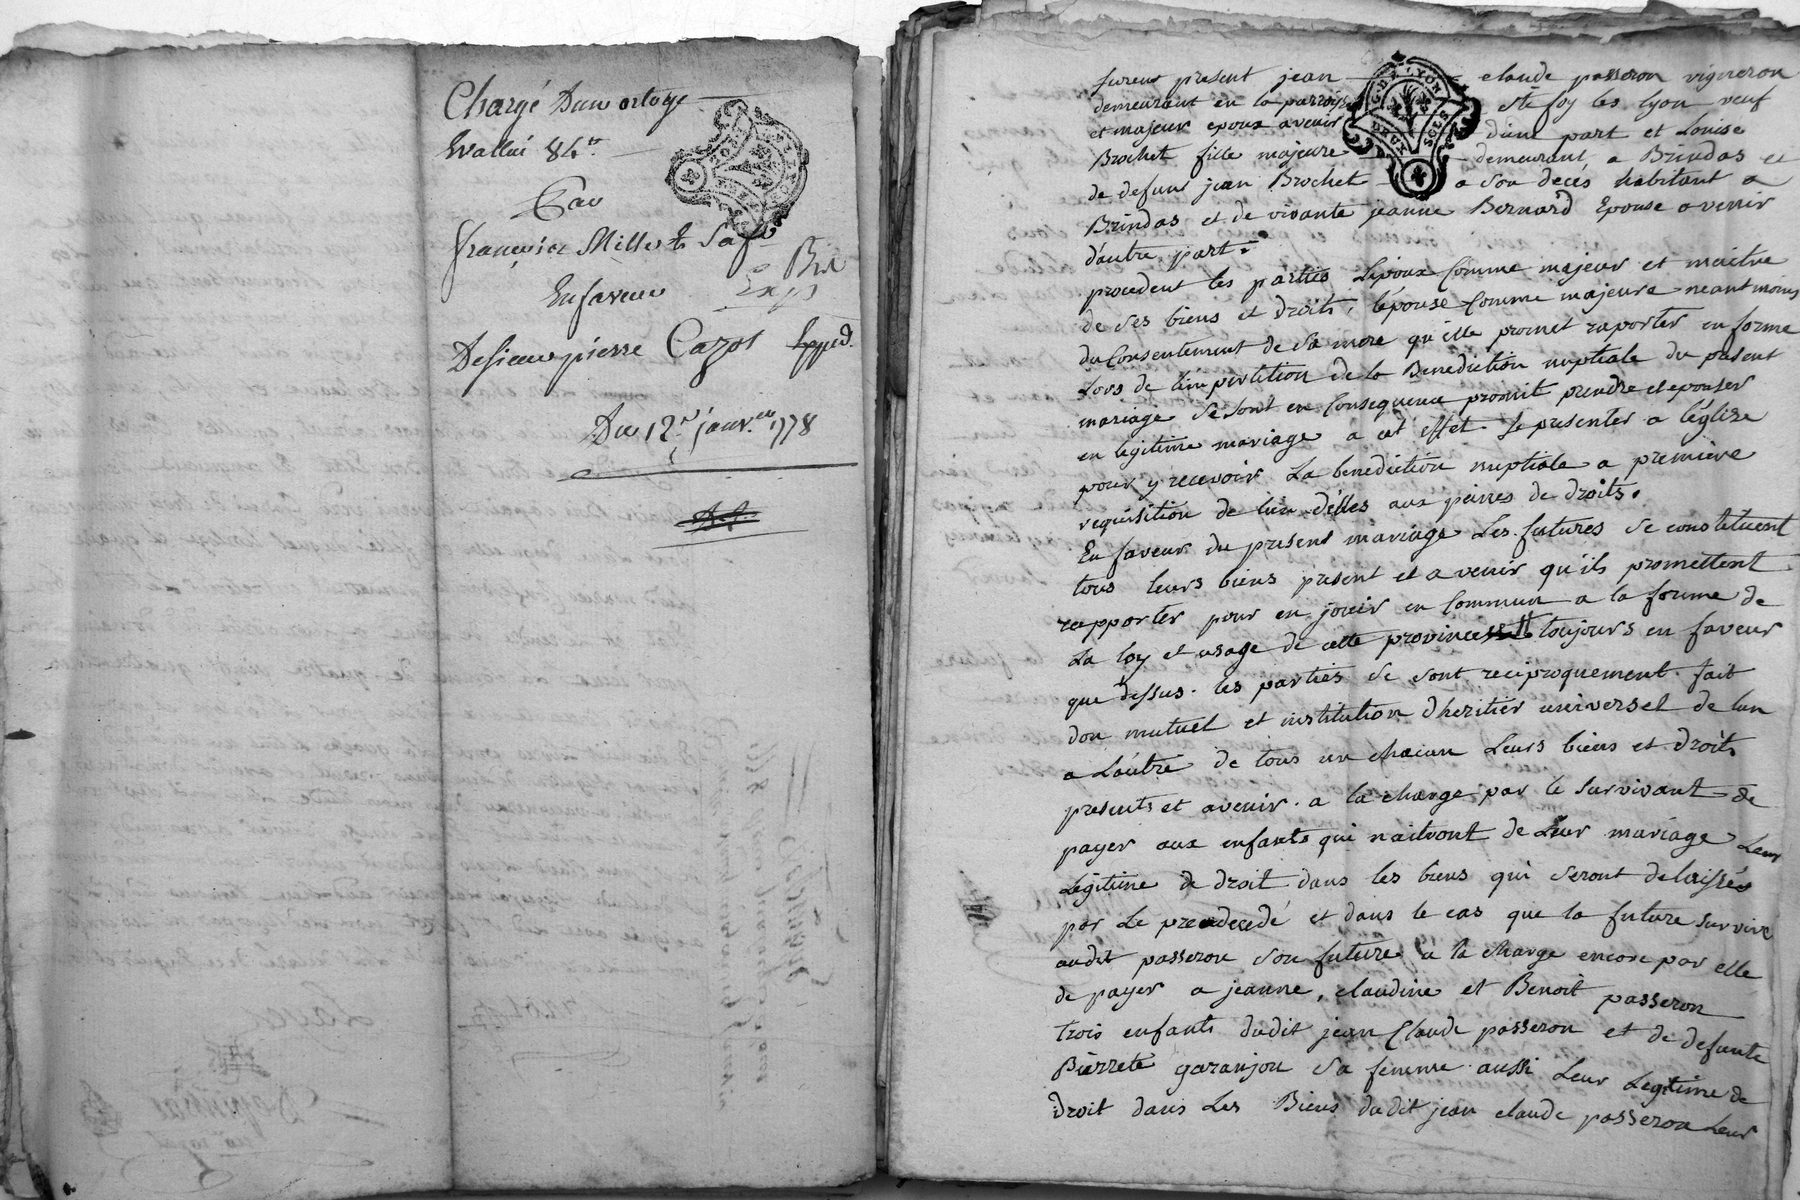 Chargé Dun orloge
Evalué 84tt
Par
françoise Millet
Enfaveur
Desieur pierre Cazot Exped.
Du 12e janv.er 1778
furent present jean claude passeron vigneron
demeurant en la parroisse ste foy les lyon veuf
et majeur epoux avenir d'une part et Louise
Brochet fille majeure demeurant a Brindas et
de defunt jean Brochet a son decés habitant a
Brindas et de vivante jeanne Bernard Epouse avenir
d'autre part.
G. DE LYON
DEUX SOLS
procedent les parties L'epoux Comme majeur et maitre
de ses biens et droits, l'epouse Comme majeure neantmoins
du Consentement de sa mere qu'elle promet raporter en forme
Lors de l'impertition de la Benediction nuptiale du present
mariage se sont en Consequence promit prendre et epouser
en legitime mariage a cet effet se presenter a l'église
pour y recevoir La benediction nuptiale a premiere
requisition de lun d'elles aux peines de droits.
En faveur du present mariage Les futures se constituent
tous leurs biens present et avenir qu'ils promettent
rapporter pour en jouir en Commun a la forme de
La loy et usage de cette province toujours en faveur
que dessus. les parties se sont reciproquement fait
don mutuel et institution d'heritier universel de lun
a L'autre de tous un chacun Leurs biens et droits
presents et avenir. a la charge par le survivant de
payer aux enfants qui naitront de Leur mariage Leur
Legitime de droit dans les biens qui seront delaissés
par Le predecedé et dans le cas que la future survive
audit passeron son future a la charge encore par elle
de payer a jeanne, claudine et Benoit passeron
trois enfants dudit jean Claude passeron et de defunte
Pierrete garanjou sa femme aussi Leur Legitime de
droit dans Les Biens dudit jean claude passeron Leur